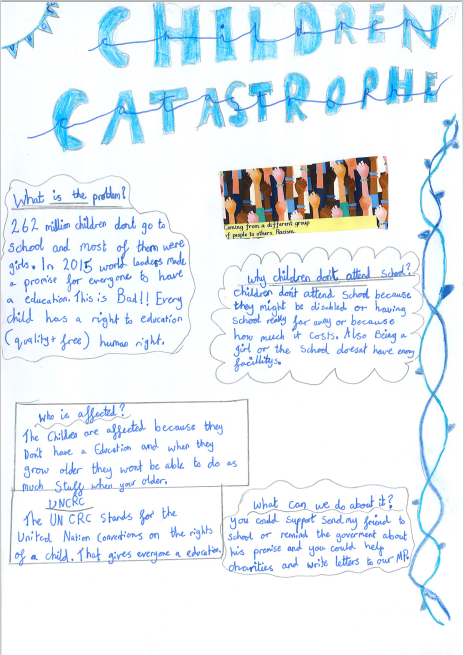 CHILDREN
children
CATASTROPHE
catastrophe
What is the problem?
262 million children dont go to
school and most of them were
girls. In 2015 world leaders made
a promise for everyone to have
a education. This is Bad!! Every
child has a right to education
(quality + free) human right.
Coming from a different group
of people to others. Racism.
why children don't attend School?
Children don't attend School because
they might be disabled or having
School really far away or because
how much it costs. Also Being a
girl or the School doesnt have
facillitys.
Who is affected?
The Children are affected because they
Don't have a Education and when they
grow older they wont be able to do as
much Stuff when your older.
UNCRC
The UN CRC Stands for the
United Nation Conventions on the rights
of a child. That gives everyone a education
What can we do about it?
you could Support Send my friend to
School or remind the goverment about
his promise and you could help
charities and write letters to our MPs